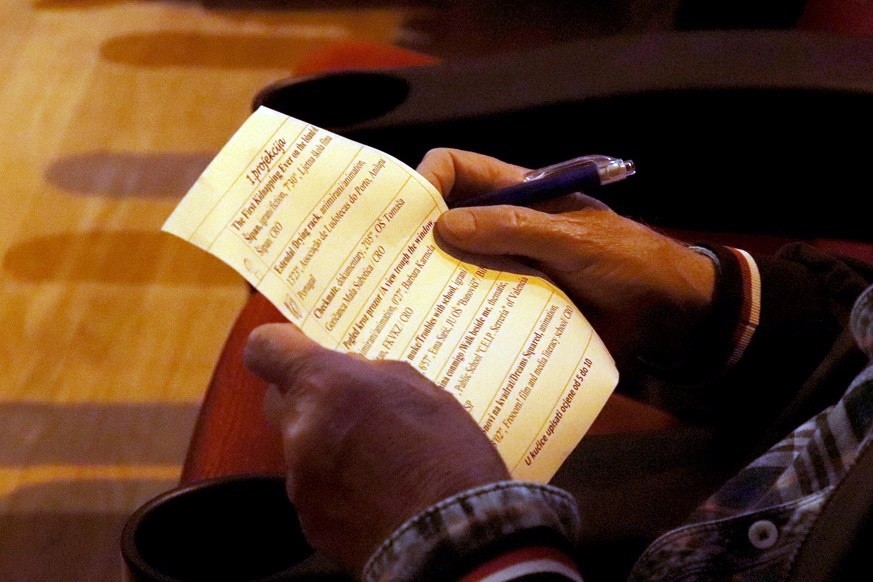 1.projekcija
The First Kidnapping Ever on the Island of
Šipan, igrani/fiction, 7'30", Ljetna škola filma
Šipan CRO
Extendal Drying rack, animirani/animation,
13'22", Associação de Ludotecas do Porto, Anilupa
Portugal
Checkmate, dokumentary, 7'05", OŠ Tomaša
Goričanca Mala Subotica / CRO
Pogled kroz prozor/ A view trough the window
animirani/animation, 0'27", Barbara Karmela
FKVKZ, CRO
muke/Troubles with school, igrani
8'57", Ema Sarić, JU OŠ "Banovići"
conmigo/Walk beside me, thematic,
Public School "C.E.I.P. Serrería" of Valencia
SP
snovi na kvadrat/Dreams Squared, animation,
Frooom! film and media literacy school/ CRO
U kućice upisati ocjene od 5 do 10